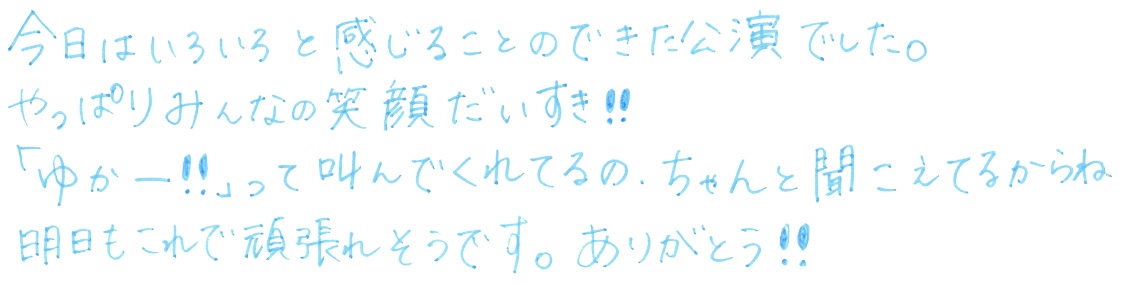 今日はいろいろと感じることのできた公演でした。
やっぱりみんなの笑顔だいすき!!
「ゆかー!!」って叫んでくれてるの、ちゃんと聞こえてるからね
明日もこれで頑張れそうです。ありがとう!!